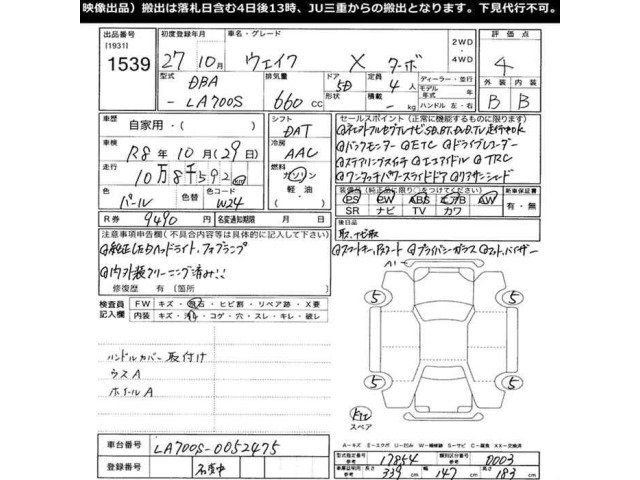 映像出品）搬出は落札日含む4日後13時、JU三重からの搬出となります。下見代行不可。
出品番号
[1931]
1539
初度登録年月
27年10月
車名・グレード
ウェイク X ターボ
2WD
・
4WD
評価点
4
型式
DBA
- LA700S
排気量
660 CC
ドア
5D
形状
定員
4人
積載
- kg
ディーラー・並行
モデル年式 年
ハンドル 左・右
外装 内装
B B
車歴
自家用・( )
シフト
DAT
車検
R8年10月(29日)
冷房
AAC
走行
10万8千592 km
燃料
ガソリン
軽油
・
色
パール
色コード
W24
R券 9490
名変通知期限 月 日
セールスポイント（正常に機能するものに限ります）
バックモニター ETC ドライブレコーダー
ステアリングスイッチ エコアイドル TRC
ワンタッチパワースライドドア リアサンシェード
装備品（純正品に限り○をつけてください）
PS PW ABS エアB AW
SR ナビ TV カワ
新車保証書
有・無
後日品
取、ナビ取
スマートキー プライバシーガラス フロアマット、バイザー
注意事項申告欄（不具合内容等は具体的に記入して下さい）
純正LEDヘッドライト、フォグランプ
内外装クリーニング済み!!
修復歴 有（箇所 ）
検査員記入欄
FW キズ・飛石・ヒビ割・リペア跡・X要
内装 キズ・汚れ・コゲ・穴・スレ・キレ・破レ
ハンドルカバー取付け
ウスA
ホイールA
A1
5 5
5 5
スペア
A－キズ E－エクボ U－凹み W－補修跡 S－サビ C－腐食 XX－交換済
車台番号 LA700S-0052475
登録番号 名変中
型式指定番号 参考 17854
類別区分番号 参考 0003
車車証明用 参考 長さ 339 cm 幅 147 cm 高さ 183 cm